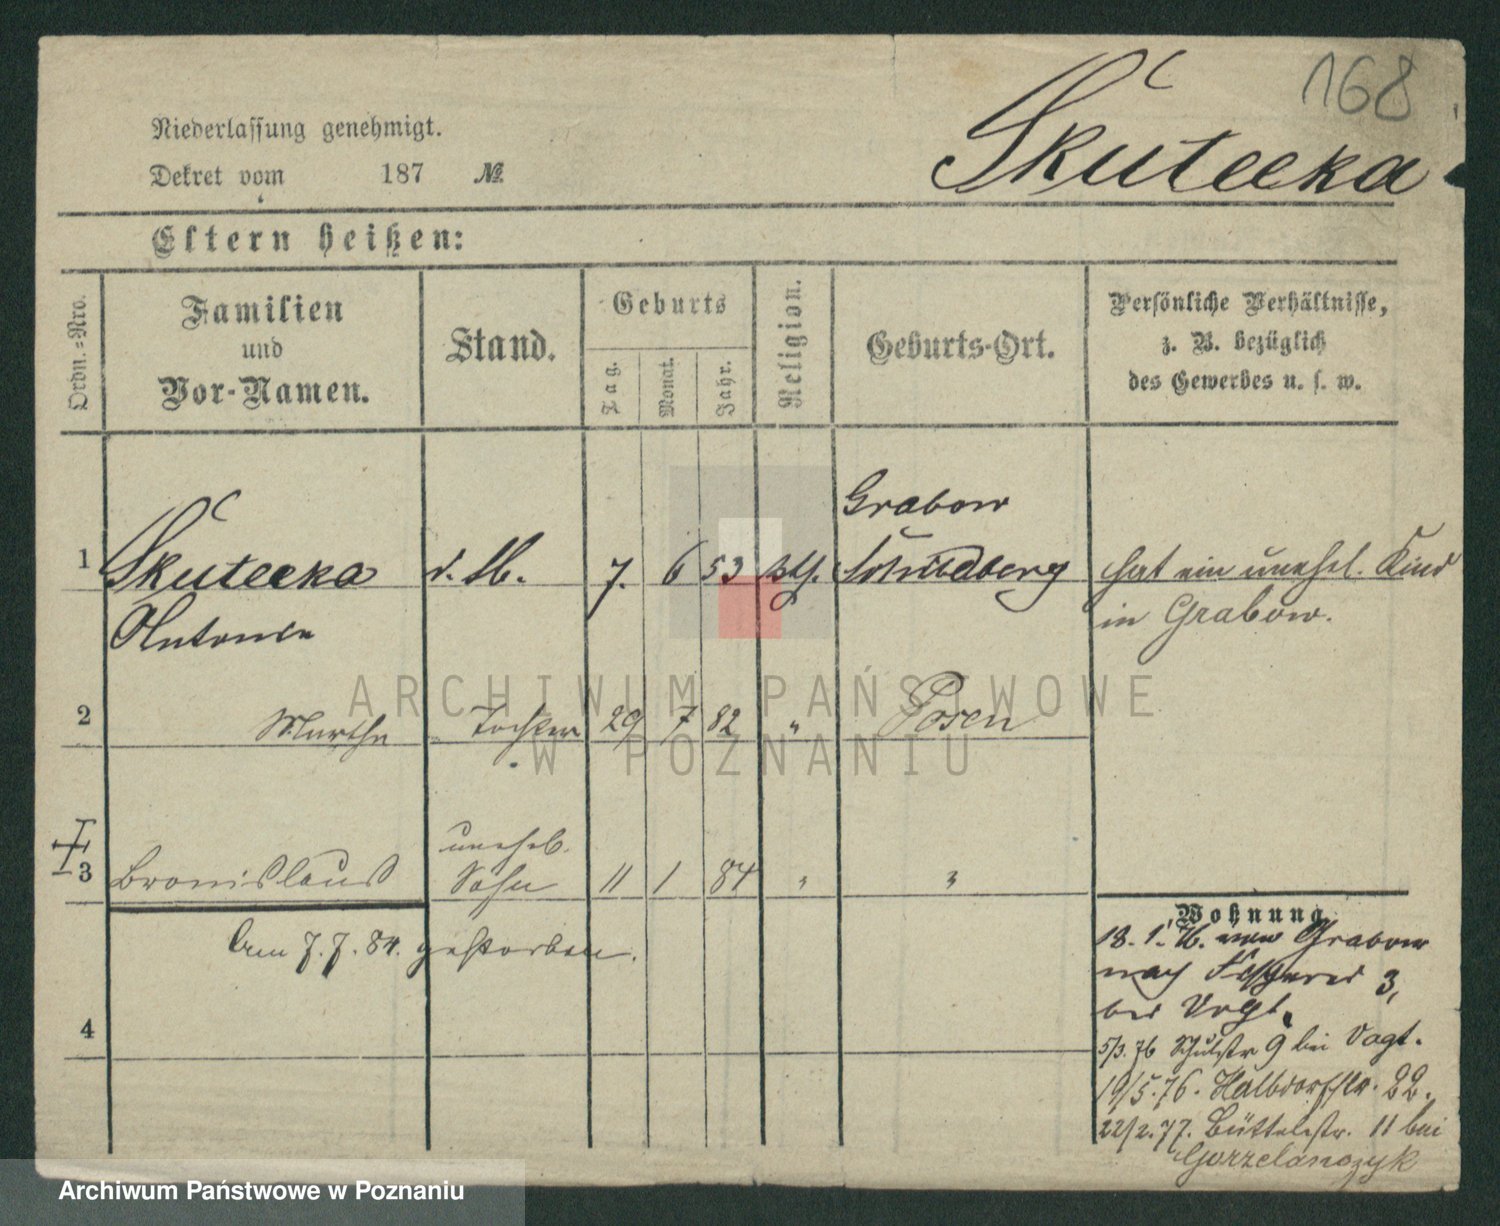 168
Skutecka
Niederlassung genehmigt.
Dekret vom 187 №
Eltern heißen:
Ordn.-Nro.
Familien
und
Vor-Namen.
Stand.
Geburts
Tag.
Monat.
Jahr.
Religion.
Geburts-Ort.
Persönliche Verhältnisse,
z. B. bezüglich
des Gewerbes u. s. w.
Grabow
1 Skutecka d. M. 7. 6 53 kth. Schildberg hat ein unehel. Kind
Antonie in Grabow.
2 Marthe Tochter 29 7 82 " Posen
unehel.
3 Bronislaus Sohn 11 1 84 " "
Am 7.7.84. gestorben.
4
Wohnung.
18. 1. 76. von Grabow
nach 3,
bei Vogt.
5/3. 76 Schulstr 9 bei Vogt.
19/5. 76. Halbdorfstr. 22.
22/2. 77. Büttelstr. 11 bei
Gorzelanczyk
ARCHIWUM PAŃSTWOWE
W POZNANIU
Archiwum Państwowe w Poznaniu